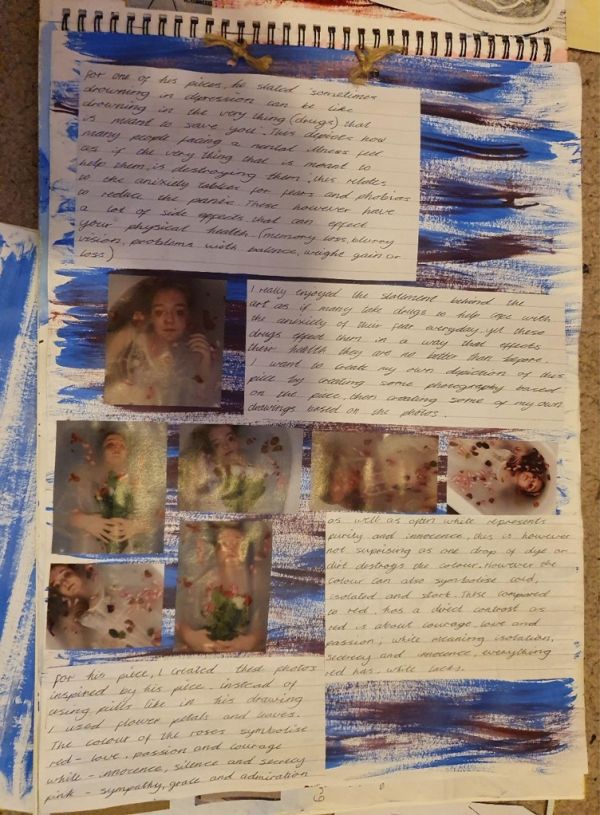 For one of his pieces, he stated sometimes
drowning in depression can be like
drowning in the very thing (drugs) that
is meant to save you. This depicts how
many people facing a mental illness feel
as if the very thing that is meant to
help them, is destroying them, this relates
to the anxiety tablets for fears and phobias
to reduce the panic. These however have
a lot of side affects that can effect
your physical health. (memory loss, blurry
vision, problems with balance, weight gain or
loss)
I really enjoyed the statement behind the
art as if many take drugs to help cope with
the anxiety of their fear everyday, yet these
drugs effect them in a way that effects
their health they are no better than before.
I want to create my own depiction of this
piece by creating some photography based
on the piece, then creating some of my own
drawings based on the photos.
as well as often white represents
purity and innocence, this is however
not suprising as one drop of dye or
dirt destroys the colour. However the
colour can also symbolise cold,
isolated and stark. These compared
to red, has a direct contrast as
red is about courage, love and
passion, while meaning isolation,
secrecy and innocence, everything
red has, white lacks.
For his piece, I created these photos
inspired by his piece, instead of
using pills like in his drawing
I used flower petals and leaves.
The colour of the roses symbolise
red - love, passion and courage
white - innocence, silence and secrecy
pink - sympathy, grace and admiration